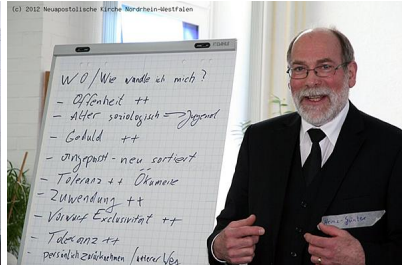 (c) 2012 Neuapostolische Kirche Nordrhein-Westfalen
WO/Wie wandle ich mich?
- Offenheit ++
- Alter soziologisch => Jugend
- Geduld ++
- angepasst - neu sortiert
- Toleranz ++ Ökumene
- Zuwendung ++
- Vorwurf Exclusivität ++
- Toleranz ++
persönlich zurücknehmen /